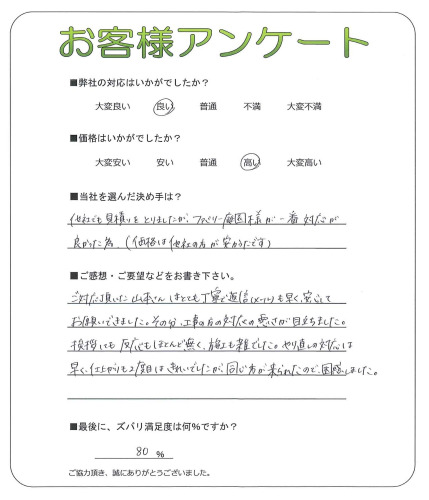 お客様アンケート
■弊社の対応はいかがでしたか？
大変良い 良い 普通 不満 大変不満
■価格はいかがでしたか？
大変安い 安い 普通 高い 大変高い
■当社を選んだ決め手は？
他社でも見積りをとりましたが、ファミリー庭園様が一番対応が
良かった為。(価格は他社の方が安かったです)
■ご感想・ご要望などをお書き下さい。
ご対応頂いた山本さんはとても丁寧で返信(メール)も早く、安心して
お願いできました。その分、工事の方の対応の悪さが目立ちました。
挨拶にも反応もほとんど無く、施工も雑でした。やり直しの対応は
早く、仕上がりも2度目はきれいでしたが、同じ方が来られたので、困惑しました。
■最後に、ズバリ満足度は何％ですか？
80 %
ご協力頂き、誠にありがとうございました。